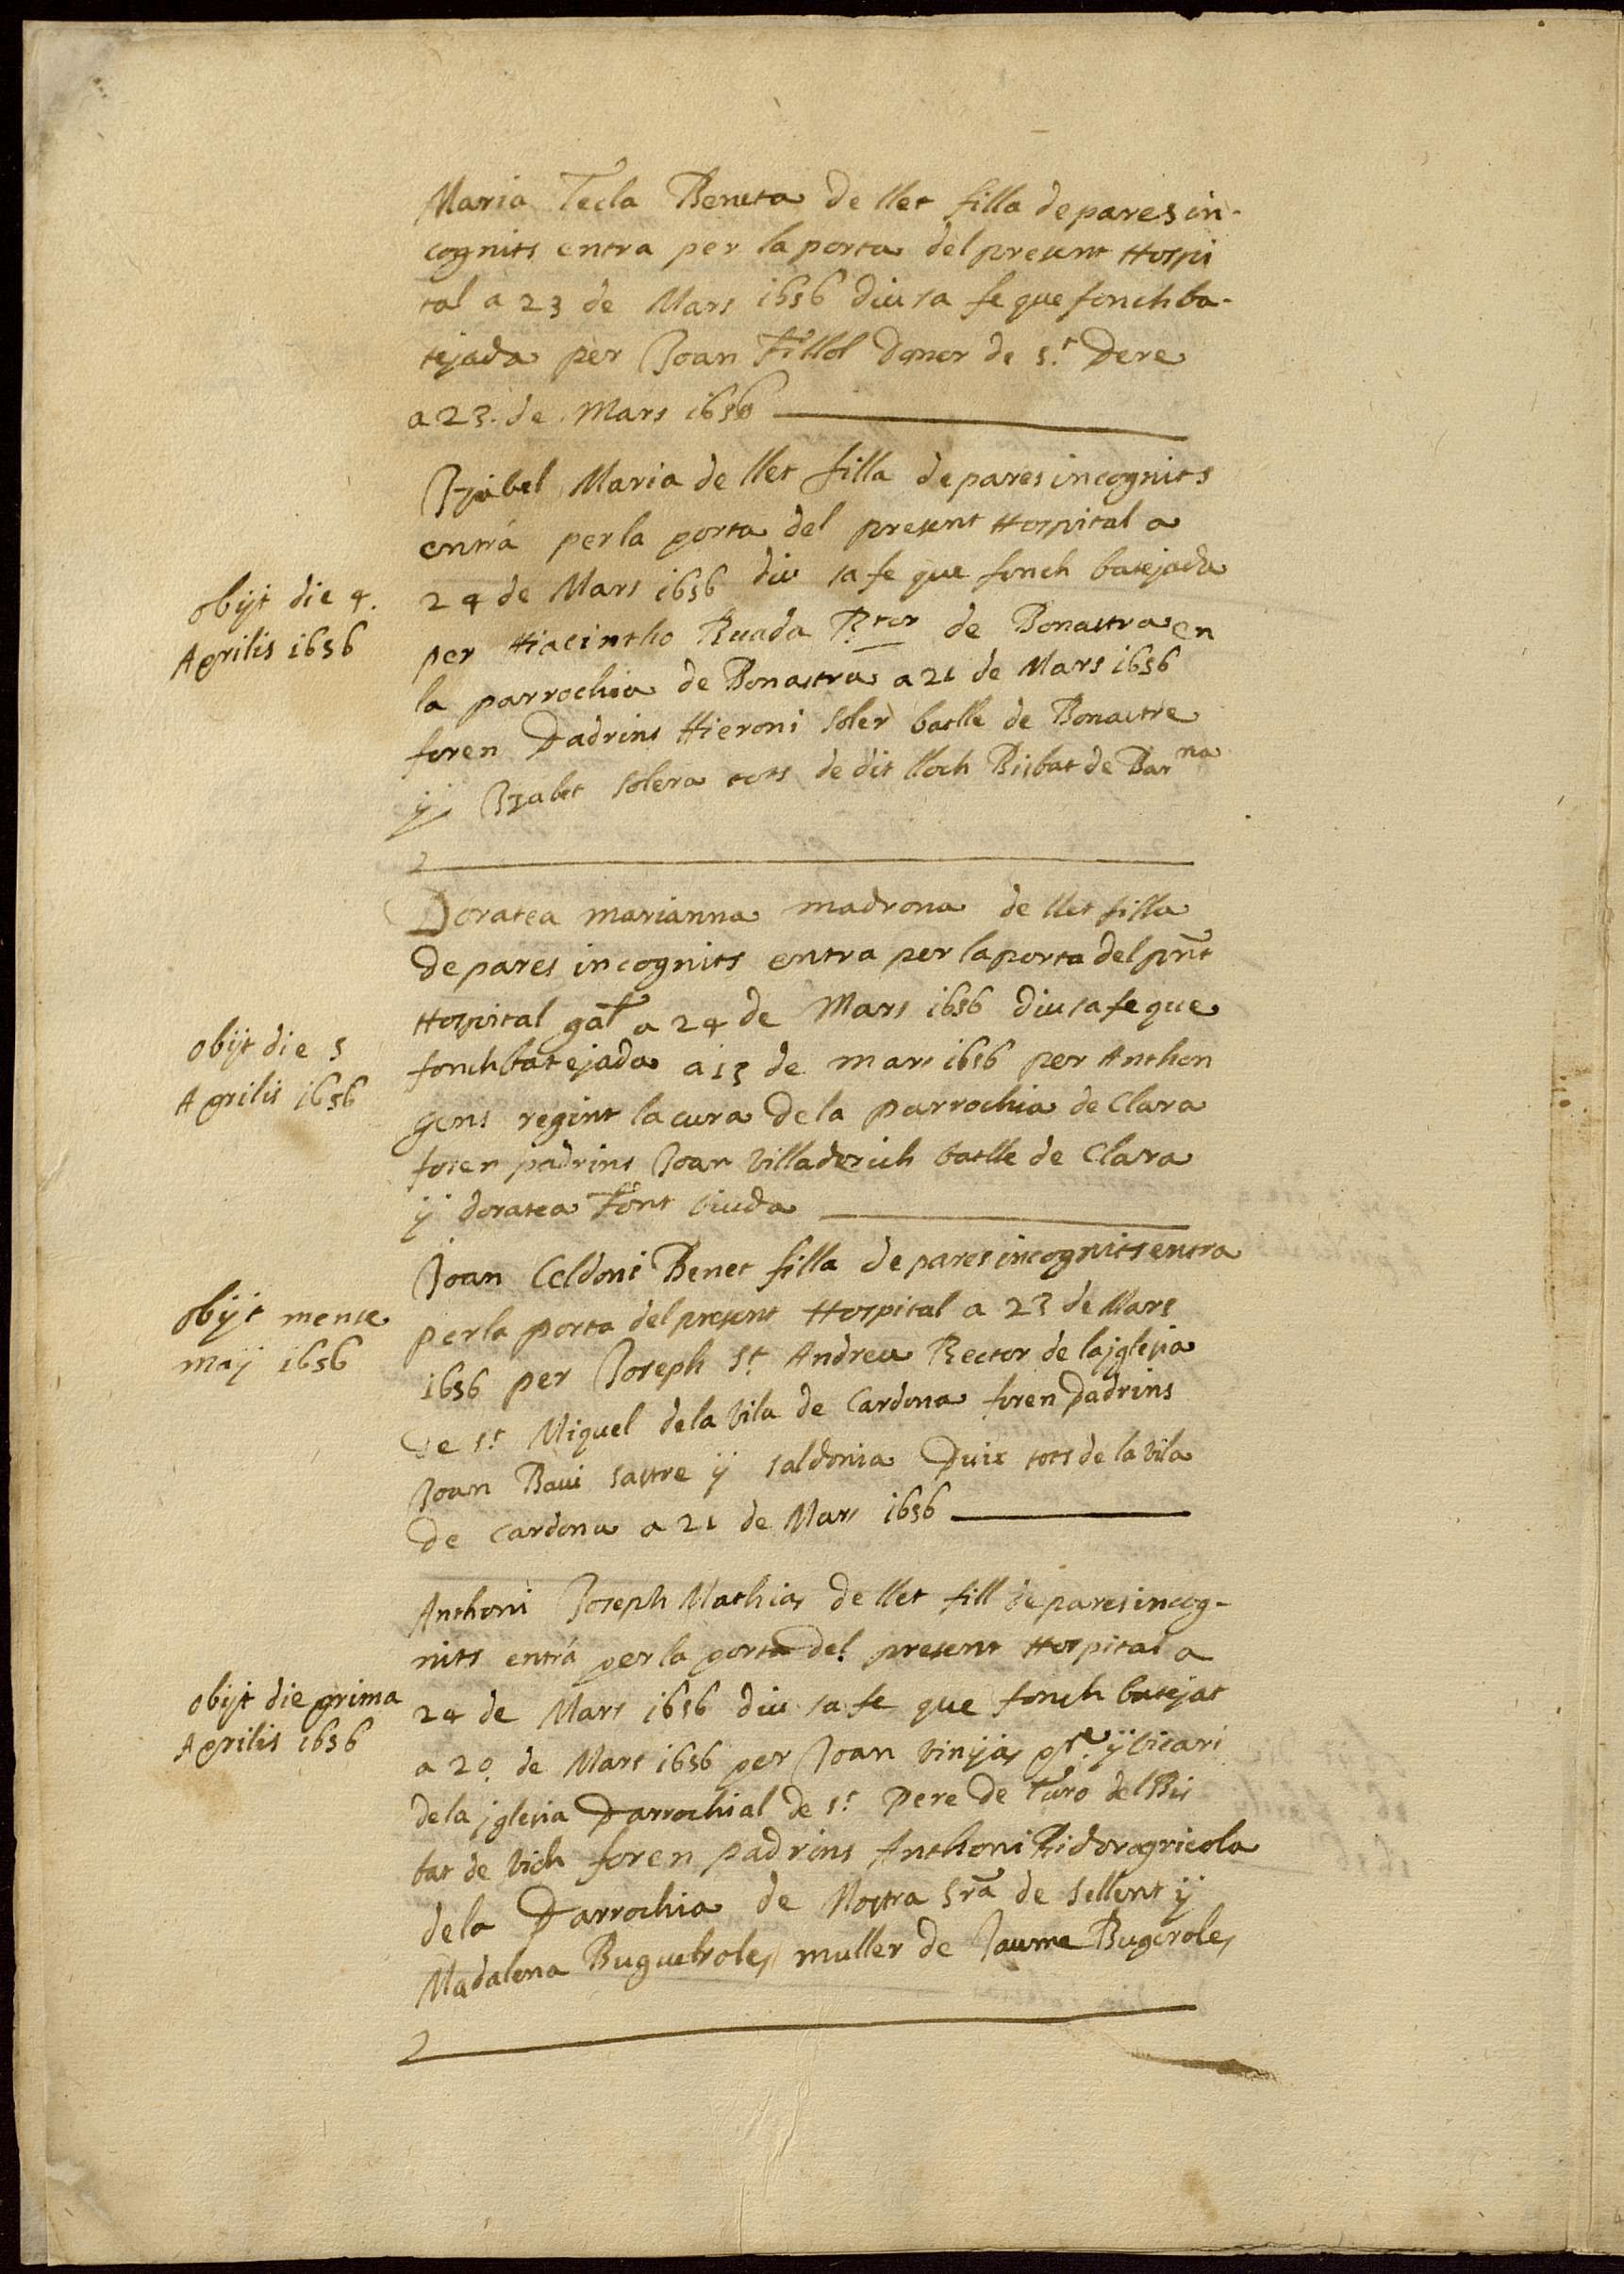 Maria Tecla Beneta de llet filla de pares in-
cognits entra per la porta del present Hospi
tal a 23 de Mars 1656 diu sa fe que fonch ba-
tejada per Joan Fillol Doner de St. Pere
a 23. de Mars 1656
Izabel Maria de llet filla de pares incognits
entrá per la porta del present Hospital a
obijt die 4.
Aprilis 1656
24 de Mars 1656 diu sa fe que fonch batejada
per Hiacintho Ruada Rtor de Bonastra en
la parrochia de Bonastra a 21 de Mars 1656
foren Padrins Hieroni Soler batlle de Bonastre
ÿ Izabet Solera tots de dit lloch Bisbat de Barna
Doratea marianna madrona de llet filla
de pares incognits entra per la porta del pnt
obijt die 5
Aprilis 1656
Hospital gal a 24 de Mars 1656 diu sa fe que
fonch batejada a 15 de mars 1656 per Anthon
gens regint la cura de la parrochia de Clara
foren padrins Joan Villaderich batlle de Clara
ÿ doratea Font viuda
Joan Celdoni Benet filla de pares incognits entra
obijt mense
maÿ 1656
per la porta del present Hospital a 23 de Mars
1656 per Joseph St Andreu Rector de la jglesia
de St. Miquel de la Vila de Cardona foren Padrins
Joan Bavi sastre ÿ saldonia Puix tots de la Vila
de Cardona a 21 de Mars 1656
Anthoni Joseph Mathias de llet fill de pares incog-
nits entrá per la porta del present Hospital a
obijt die prima
Aprilis 1656
24 de Mars 1656 diu sa fe que fonch batejat
a 20. de Mars 1656 per Joan Vinyas pre. ÿ vicari
de la jglesia Parrochial de St. Pere de Turo del Bis
bat de Vich foren padrins Anthoni Ridor agricola
de la Parrochia de Nostra Sra de Sellent ÿ
Madalena Buguetroles muller de Jaume Bugeroles